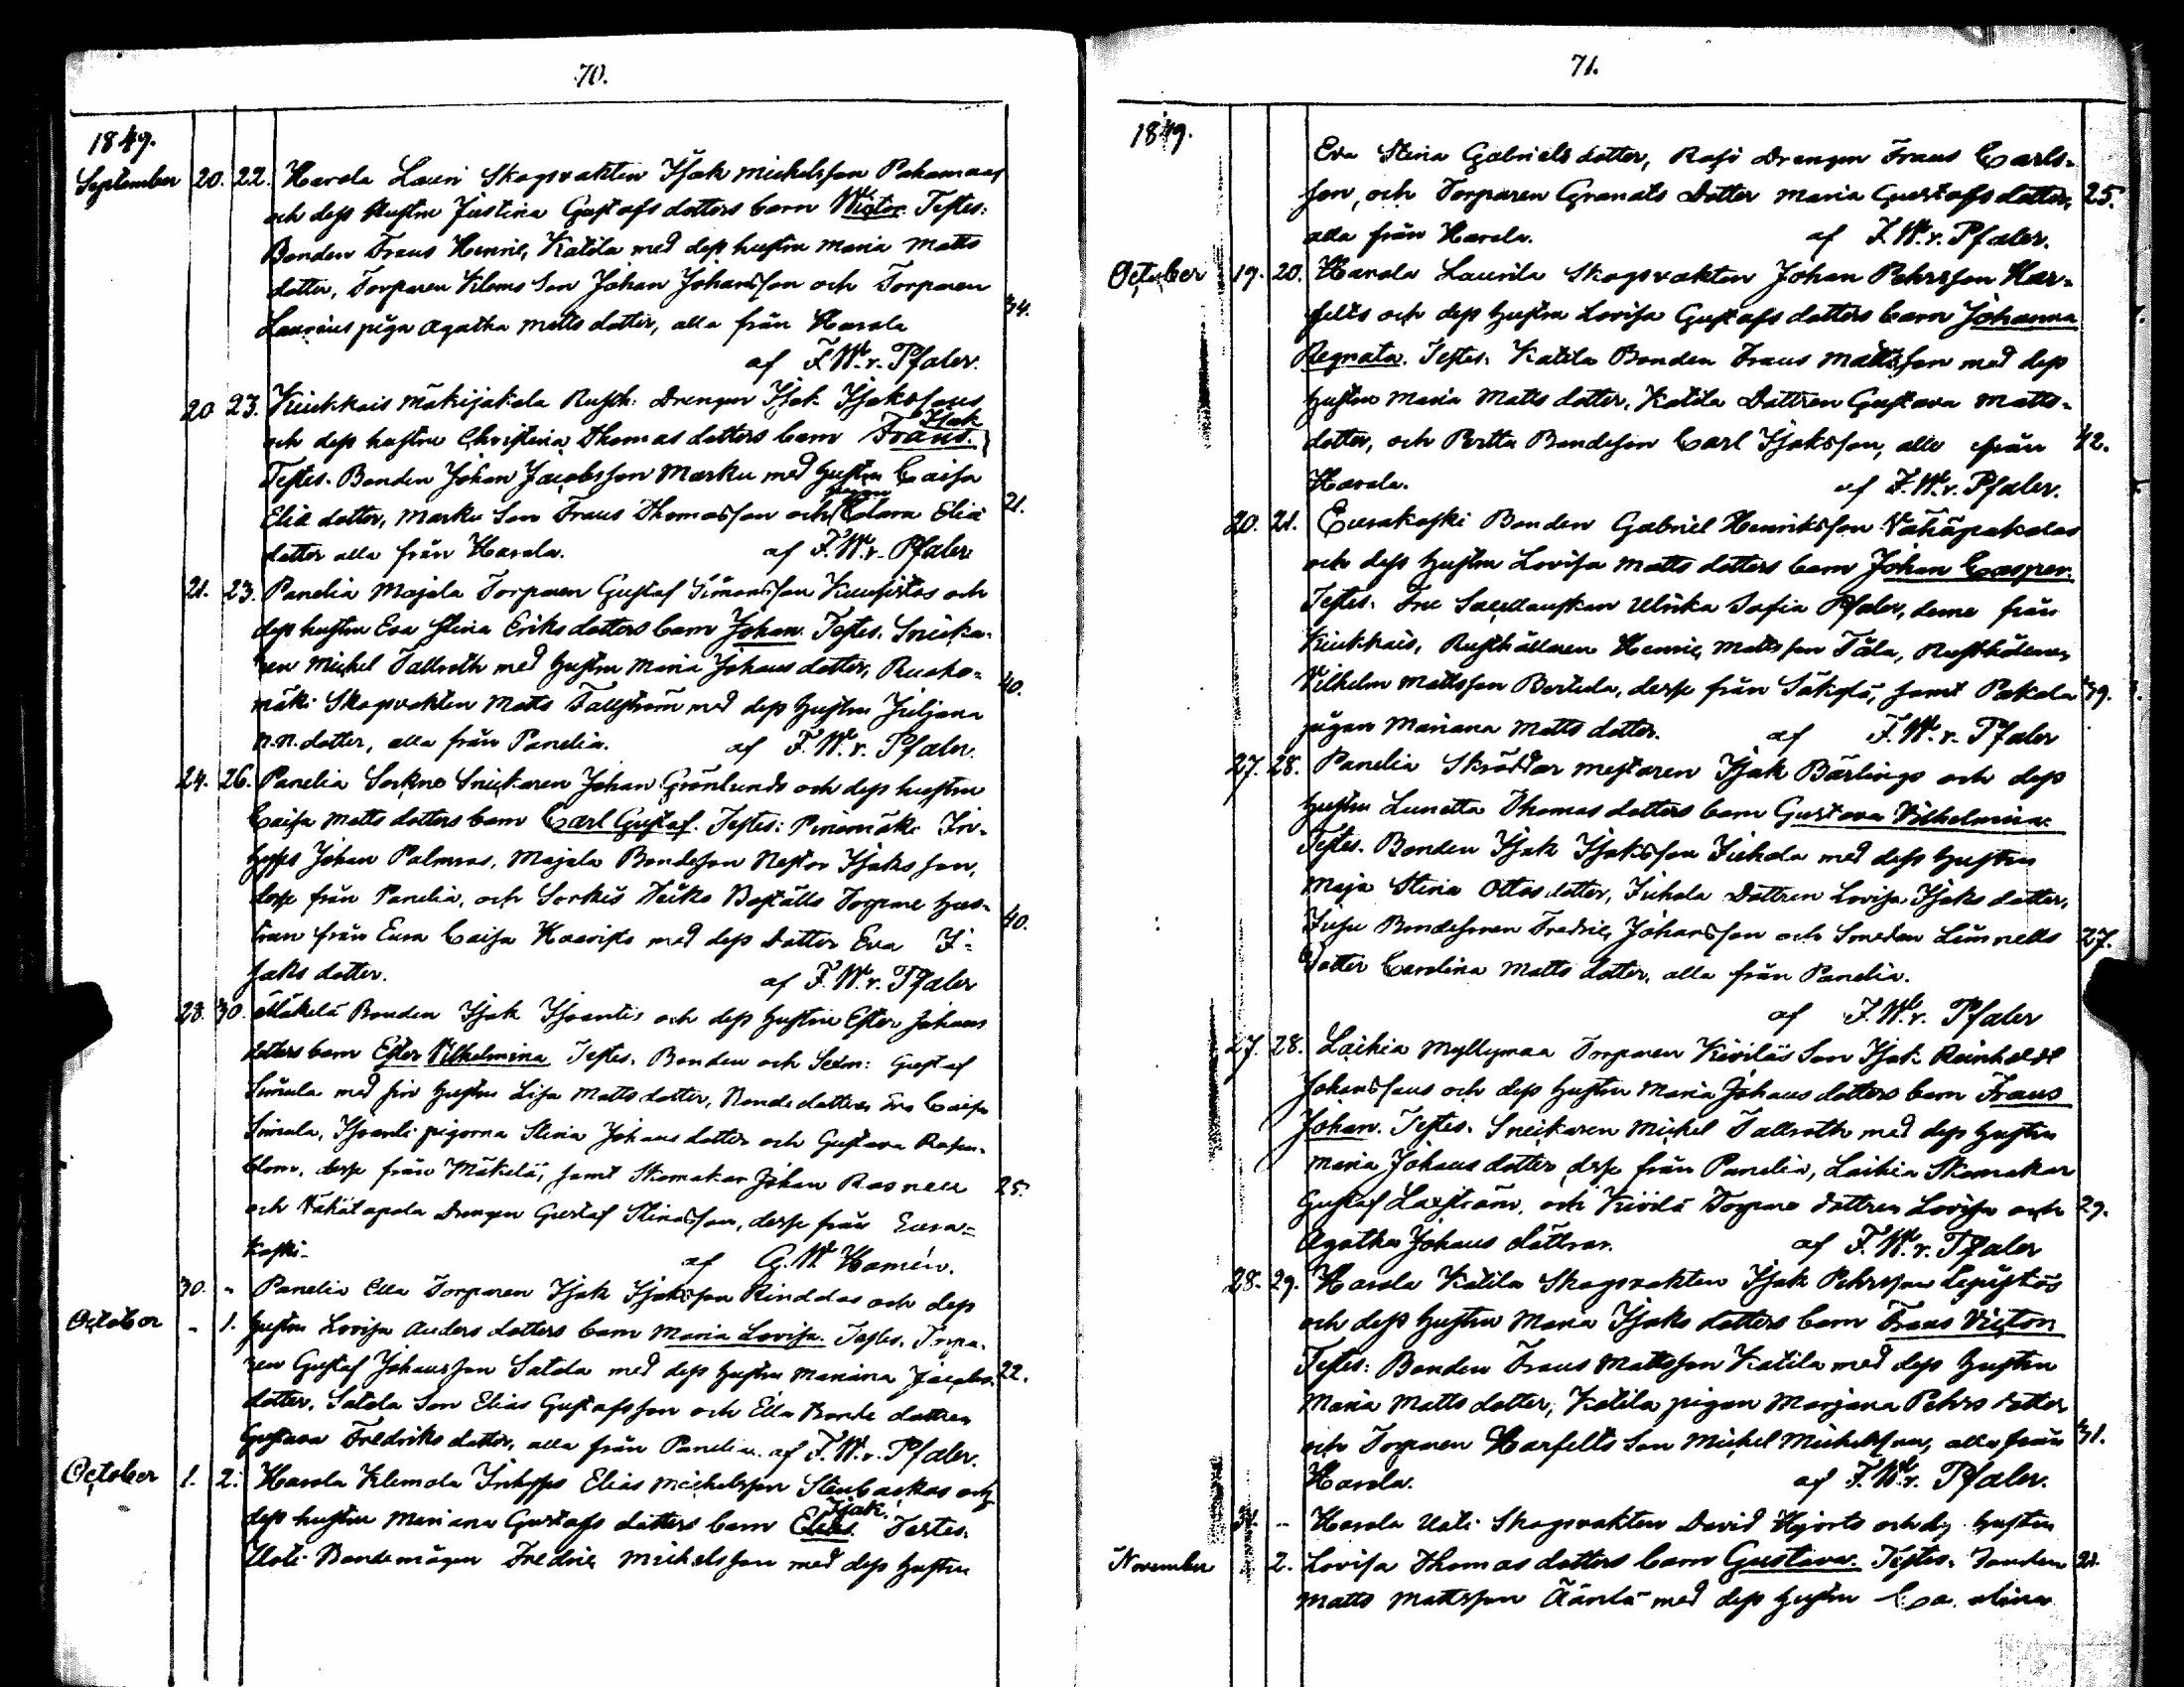 70.
1849.
September 20. 22. Harola Lauri Skogsvakten Isak Michelsson Pahamaas
och dess Hustru Justina Gustafs dotters barn Victor. Testes:
Bonden Frans Henric, Katila med dess hustru Maria Matts
dotter, Torparen Klems Son Johan Johansson och Torparen
Laurins piga Agatha Matts dotter, alla från Harola 34.
af F. W. v. Pfaler.
20 23. Kiukkais Mäkijakala Rusth: Drengen Isak Isakssons
Isak
och dess hustru Christina Thomas dotters barn Frans.
Testes. Bonden Johan Jacobsson Marku med hustru Caisa
pigan
Eliæ dotter, Marku Son Frans Thomasson och Clara Eliæ 21.
dotter alla från Harola. af F. W. v. Pfaler.
21. 23. Panelia Majala Torparen Gustaf Simonsson Kuusistos och
dess hustru Eva Stina Eriks dotters barn Johan. Testes. Snicka-
ren Michel Tallroth med hustru Maria Johans dotter, Ruoho-
mäki Skogvakten Matts Tallström med dess hustru Juljana 40.
N.N. dotter, alla från Panelia. af F. W. v. Pfaler.
24. 26. Panelia Sockne Snickaren Johan Grönlunds och dess hustru
Caisa Matts dotters barn Carl Gustaf. Testes: Pinomäki In-
hyses Johan Palmros, Majala Bondeson Nestor Isaksson,
desse från Panelia, och Sorkis Heiko Boställs Torpare hus-
trun från Eura Caisa med dess Dotter Eva I- 40.
saks dotter. af F. W. v. Pfaler
28. 30. Mäkelä Bonden Isak Isoantis och dess hustru Ester Johans
dotters barn Ester Vilhelmina Testes. Bonden och Sexm: Gustaf
Simula med sin hustru Lisa Matts dotter, Bonde dottren Eva Caisa
Simula, Isoanti pigorna Stina Johans dotter och Gustava Rosen-
blom, desse från Mäkelä, samt Skomakar Johan Rosnell 25.
och Vähätapola Drengen Gustaf Stinasson, desse från Eura-
koski. af G. W. Hamén.
30. " Panelia Ella Torparen Isak Isaksson Rinddas och dess
October " 1. hustru Lovisa Anders dotters barn Maria Lovisa. Testes. Torpa-
ren Gustaf Johansson Satola med dess hustru Mariana Jacobs- 22.
dotter, Satola Son Elias Gustafsson och Ella Bonde dottren
Gustava Fredriks dotter, alla från Panelia. af F. W. v. Pfaler.
October 1. 2. Harola Klemola Inhyses Elias Michelsson Stenbackas och
Isak.
dess hustru Mariana Gustafs dotters barn Elias. Testes.
Uoti Bondemågen Fredric Michelsson med dess hustru
71.
1849.
Eva Stina Gabriels dotter, Rasi Drengen Frans Carls-
son, och Torparen Granats Dotter Maria Gustafs dotter, 25.
alla från Harola. af F. W. v. Pfaler.
October 19. 20. Harola Laurila Skogsvakten Johan Pehrsson Har-
felts och dess hustru Lovisa Gustafs dotters barn Johanna
Regnata. Testes. Katila Bonden Frans Mattsson med dess
hustru Maria Matts dotter, Katila Dottren Gustava Matts-
dotter, och Pertta Bondeson Carl Isaksson, alla från 42.
Harola. af F. W. v. Pfaler.
20. 21. Eurakoski Bonden Gabriel Henriksson Vähäpakolas
och dess hustru Lovisa Matts dotters barn Johan Casper.
Testes. Fru Ulrika Sofia Pfaler, denne från
Kiukkais, Rusthållaren Henric Mattsson Tåla, Rusthållaren
Vilhelm Mattsson Bertula, desse från Säkylä, samt Pakola 39.
pigan Mariana Matts dotter. af F. W. v. Pfaler
27. 28. Panelia Skräddar mestaren Isak Bärlings och dess
hustru Lunetta Thomas dotters barn Gustava Vilhelmina.
Testes. Bonden Isak Isaksson Jickola med dess hustru
Maja Stina Ottos dotter, Jickola Dottren Lovisa Isaks dotter,
Bondesonen Fredric Johansson och Smeden Linnells 27.
Dotter Carolina Matts dotter, alla från Panelia.
af F. W. v. Pfaler
27. 28. Laihia Myllymaa Torparen Kiviläs Son Isak Reinholdt
Johanssons och dess hustru Maria Johans dotters barn Frans
Johan. Testes. Snickaren Michel Tallroth med dess hustru
Maria Johans dotter, desse från Panelia, Laihia Skomakar
Gustaf Laxström, och Kivilä Torpare dottren Lovisa och 29.
Agatha Johans döttrar. af F. W. v. Pfaler
28. 29. Harola Katila Skogsvakten Isak Pehrsson Lepistös
och dess hustru Maria Isaks dotters barn Frans Victor
Testes: Bonden Frans Mattsson Katila med dess hustru
Maria Matts dotter, Katila pigan Marjana Pehrs dotter
och Torparen Harfelts Son Michel Michelsson, alla från 31.
Harola. af F. W. v. Pfaler.
31. " Harola Uoti Skogsvakten David Hjorts och ds hustru
November " 2. Lovisa Thomas dotters barn Gustava. Testes. Bonden 21.
Matts Mattsson Äänlä med dess hustru Ca. Stina